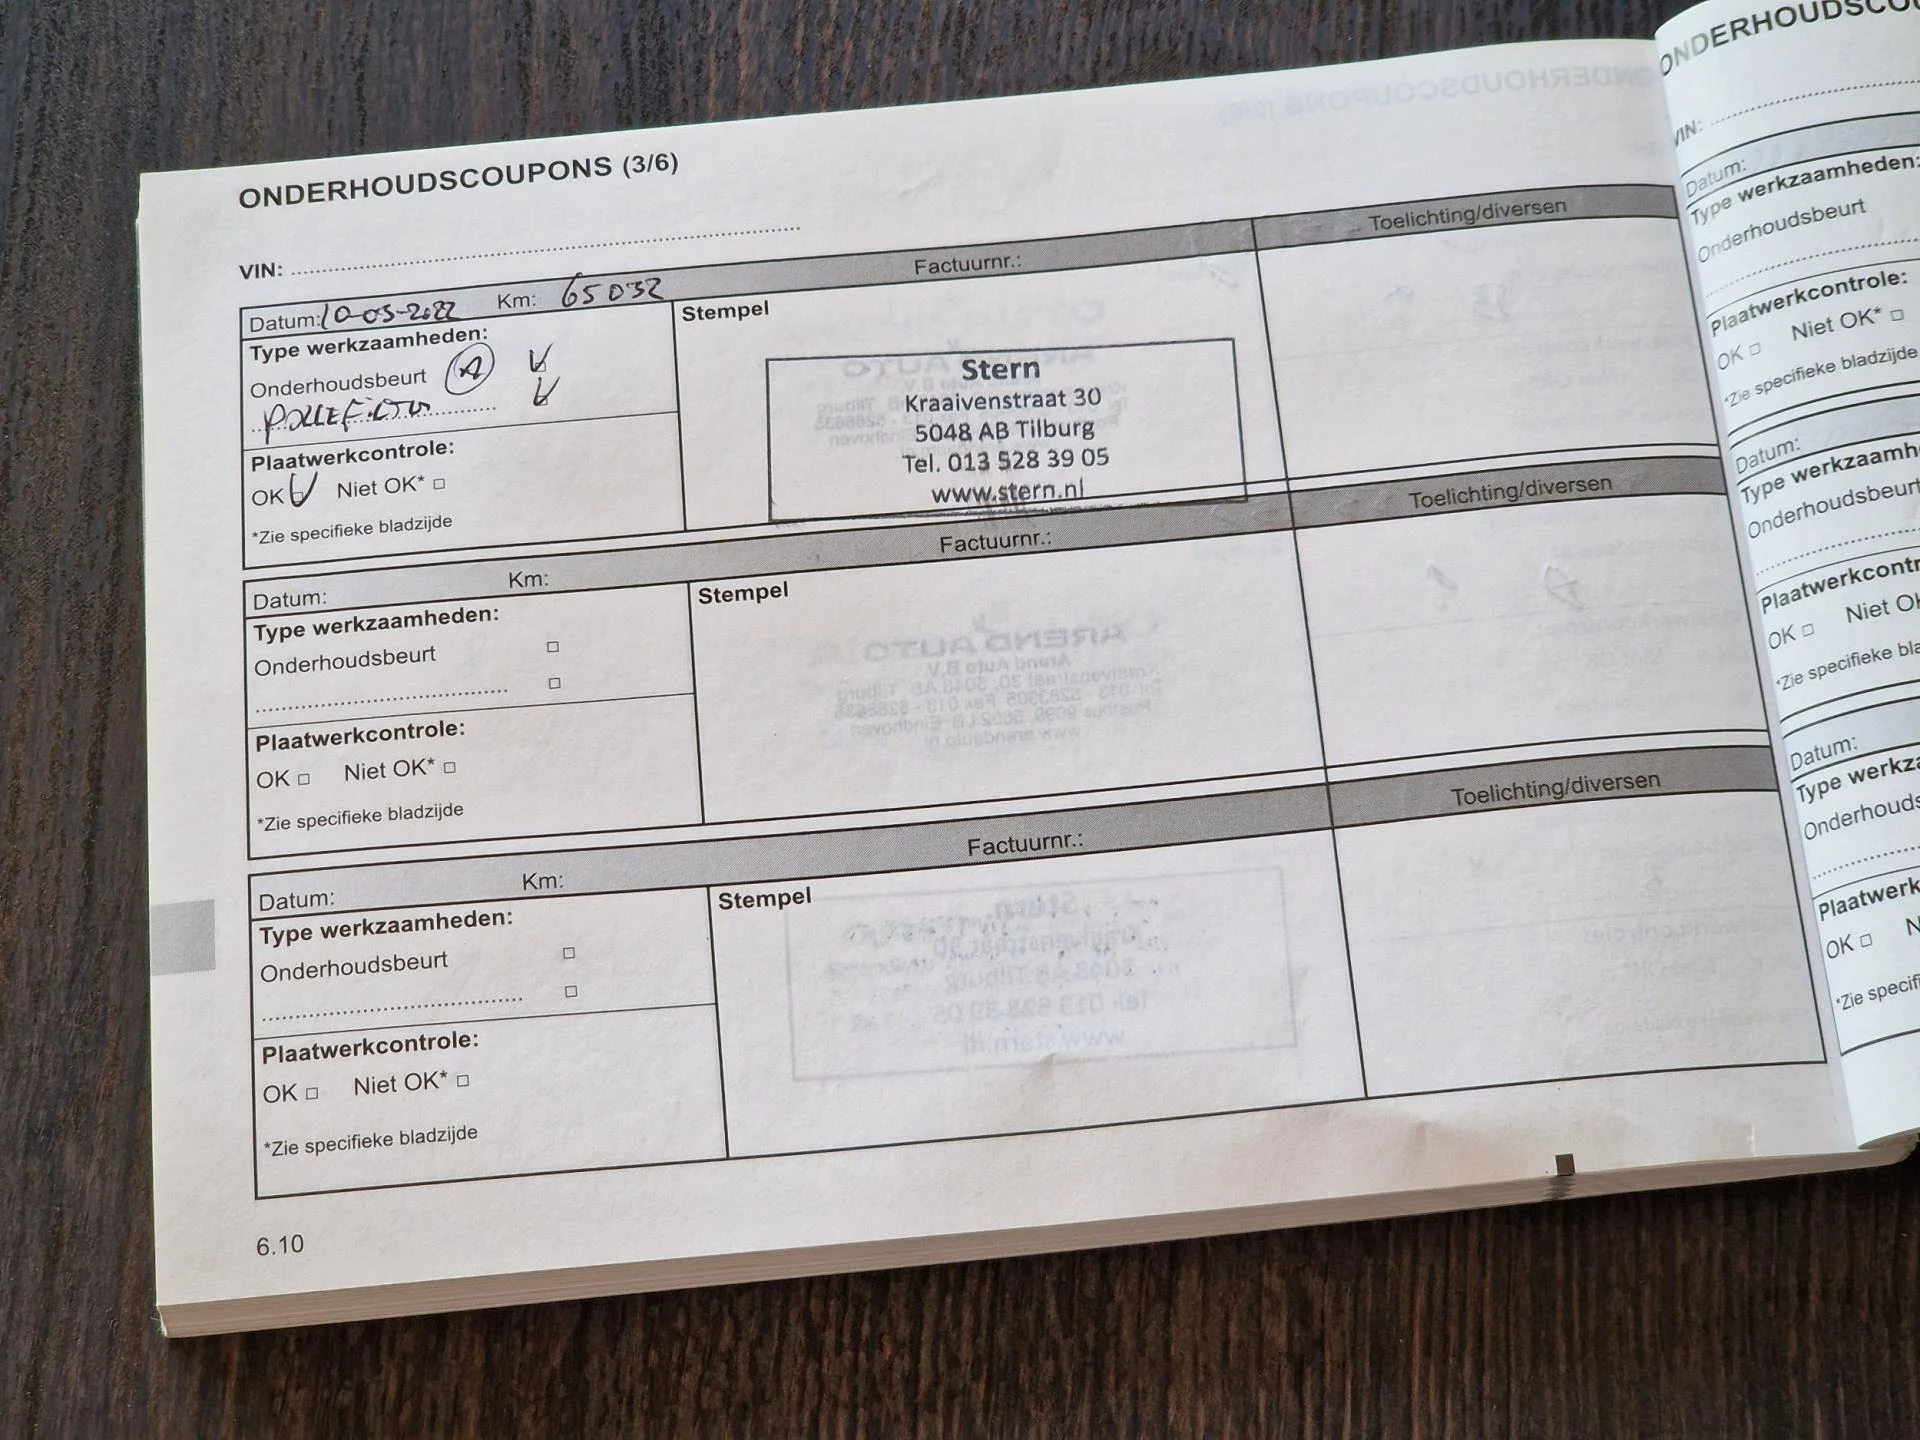 ONDERHOUDSCOUPONS (3/6)
VIN:
Datum: 10-05-2022 Km: 65032 Factuurnr.: Toelichting/diversen
Type werkzaamheden:
Onderhoudsbeurt A
POLLEFILTER
Plaatwerkcontrole:
OK Niet OK*
*Zie specifieke bladzijde
Stempel
Stern
Kraaivenstraat 30
5048 AB Tilburg
Tel. 013 528 39 05
www.stern.nl
Datum: Km: Factuurnr.: Toelichting/diversen
Type werkzaamheden:
Onderhoudsbeurt
Plaatwerkcontrole:
OK Niet OK*
*Zie specifieke bladzijde
Stempel
Datum: Km: Factuurnr.: Toelichting/diversen
Type werkzaamheden:
Onderhoudsbeurt
Plaatwerkcontrole:
OK Niet OK*
*Zie specifieke bladzijde
Stempel
6.10
VIN:
Datum:
Type werkzaamheden:
Onderhoudsbeurt
Plaatwerkcontrole:
OK Niet OK*
*Zie specifieke bladzijde
Datum:
Type
Onderhoudsbeurt
OK Niet
*Zie specifieke
Datum:
Type
OK
*Zie